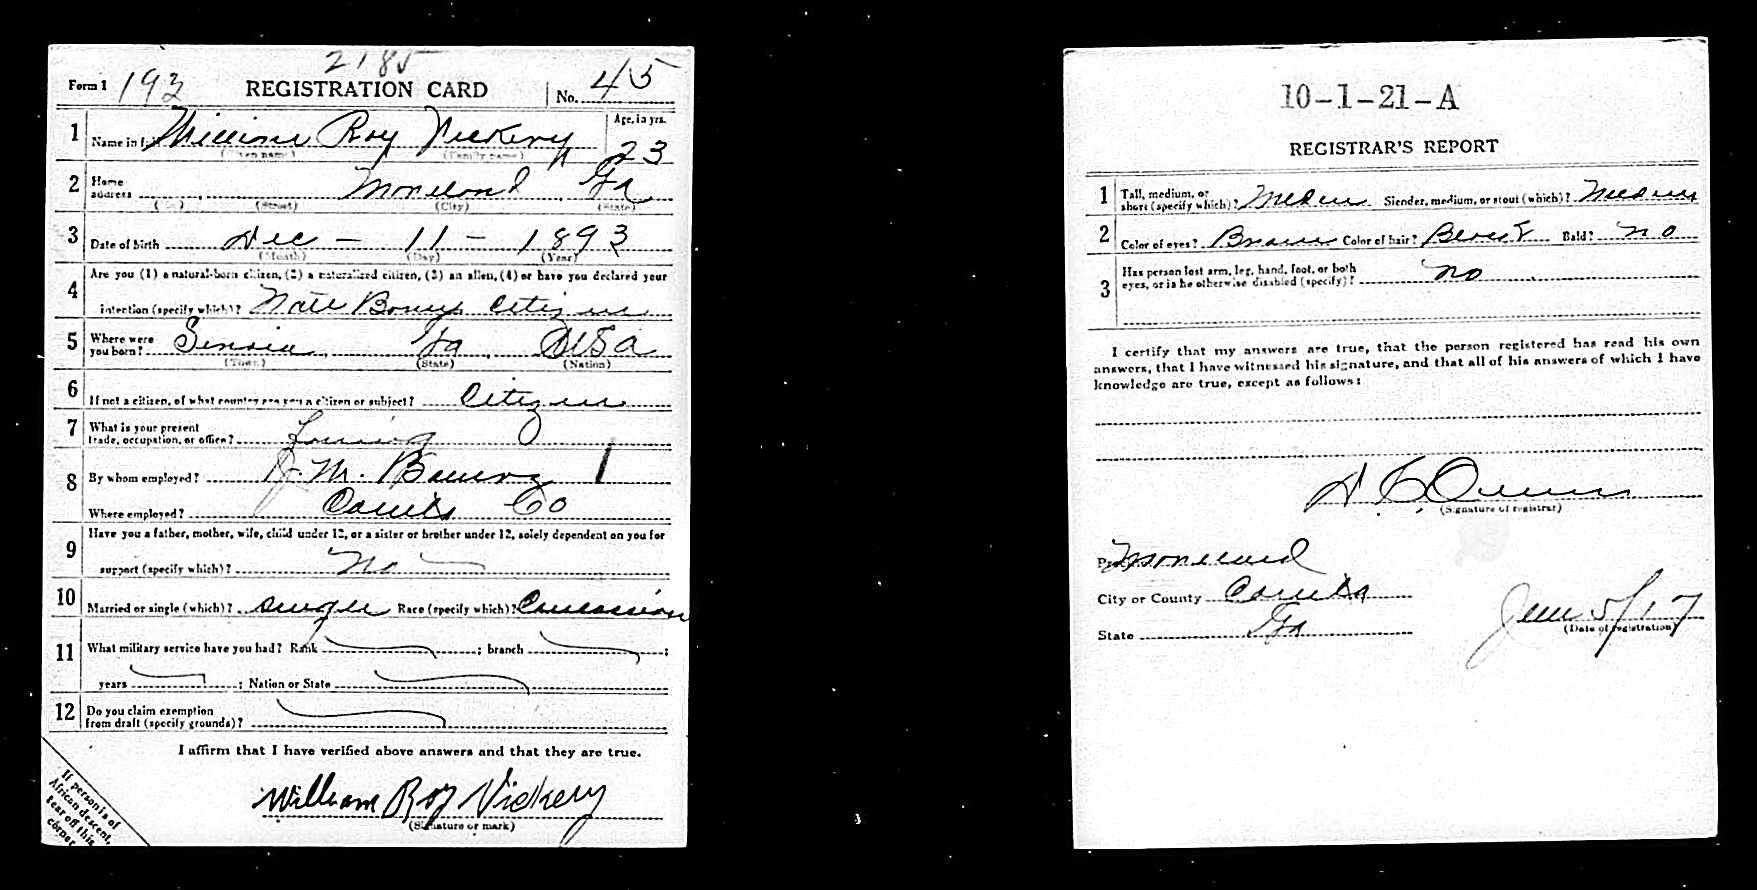 2185
Form 1 193 REGISTRATION CARD No. 45
1 Name in full William Roy Vickery Age, in yrs. 23
(Given name) (Family name)
2 Home address Moreland Ga
(No.) (Street) (City) (State)
3 Date of birth Dec - 11 - 1893
(Month) (Day) (Year)
4 Are you (1) a natural-born citizen, (2) a naturalized citizen, (3) an alien, (4) or have you declared your
intention (specify which)? Citizen
5 Where were you born? Senoia Ga USa
(Town) (State) (Nation)
6 If not a citizen, of what country are you a citizen or subject? Citizen
7 What is your present trade, occupation, or office? Farming
8 By whom employed? J. M.
Where employed? Coweta Co
9 Have you a father, mother, wife, child under 12, or a sister or brother under 12, solely dependent on you for
support (specify which)? No
10 Married or single (which)? single Race (specify which)? Caucasian
11 What military service have you had? Rank ; branch ;
years ; Nation or State
12 Do you claim exemption from draft (specify grounds)?
I affirm that I have verified above answers and that they are true.
William Roy Vickery
(Signature or mark)
If person is of
African descent,
tear off this
corner
10-1-21-A
REGISTRAR'S REPORT
1 Tall, medium, or short (specify which)? Medium Slender, medium, or stout (which)? Medium
2 Color of eyes? Brown Color of hair? Black Bald? No
3 Has person lost arm, leg, hand, foot, or both eyes, or is he otherwise disabled (specify)? No
I certify that my answers are true, that the person registered has read his own
answers, that I have witnessed his signature, and that all of his answers of which I have
knowledge are true, except as follows:
(Signature of registrar)
Moreland
City or County Coweta
State Ga
June 5/17
(Date of registration)